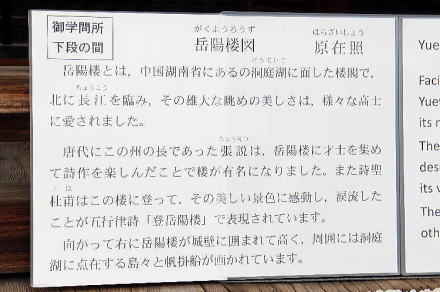 御学問所
下段の間
がくようろうず
岳陽楼図
はらざいしょう
原在照
岳陽楼とは、中国湖南省にあるの洞庭湖に面した楼閣で、
どうていこ
北に長江を臨み、その雄大な眺めの美しさは、様々な高士
ちょうこう
に愛されました。
唐代にこの州の長であった張説は、岳陽楼に才士を集め
ちょうえつ
て詩作を楽しんだことで楼が有名になりました。また詩聖
杜甫はこの楼に登って、その美しい景色に感動し、涙流した
とほ
ことが五行律詩「登岳陽楼」で表現されています。
向かって右に岳陽楼が城壁に囲まれて高く、周囲には洞庭
湖に点在する島々と帆掛船が画かれています。
Yue
Faci
Yue
its n
The
des
its v
The
oth